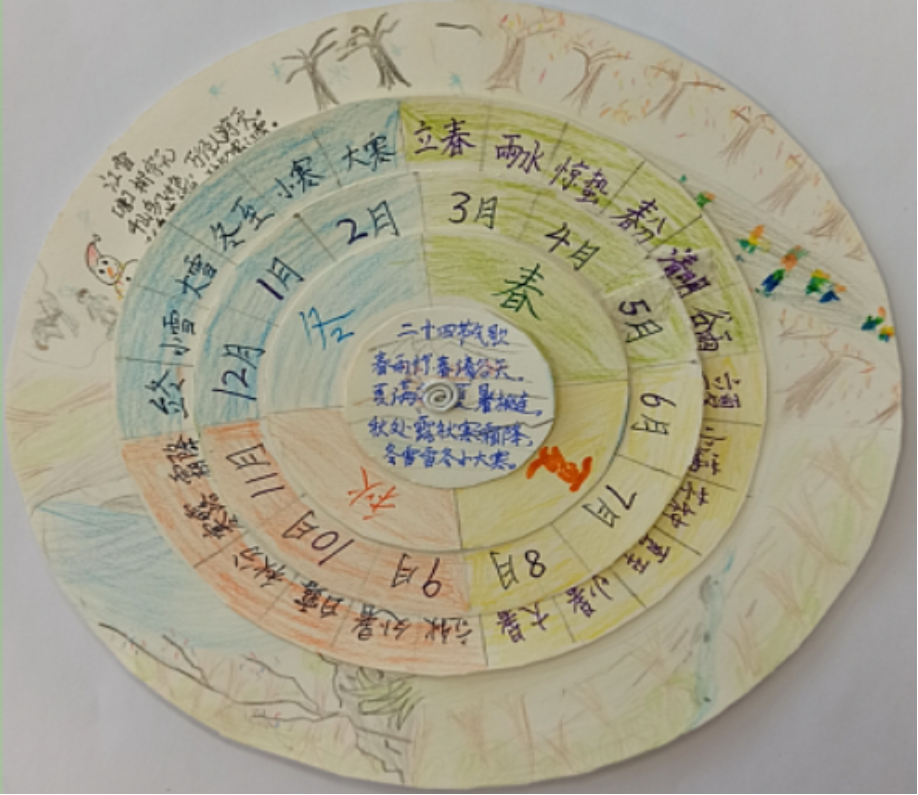 江雪
立春
雨水
惊蛰
春分
清明
谷雨
小满
小暑
大暑
立秋
处暑
白露
秋分
霜降
终
小雪
大雪
冬至
小寒
大寒
3月
4月
5月
6月
7月
8月
9月
10月
11月
12月
1月
2月
春
夏
秋
冬
二十四节气歌
春雨惊春清谷天。
夏满 夏暑相连,
秋处露秋寒霜降,
冬雪雪冬小大寒。